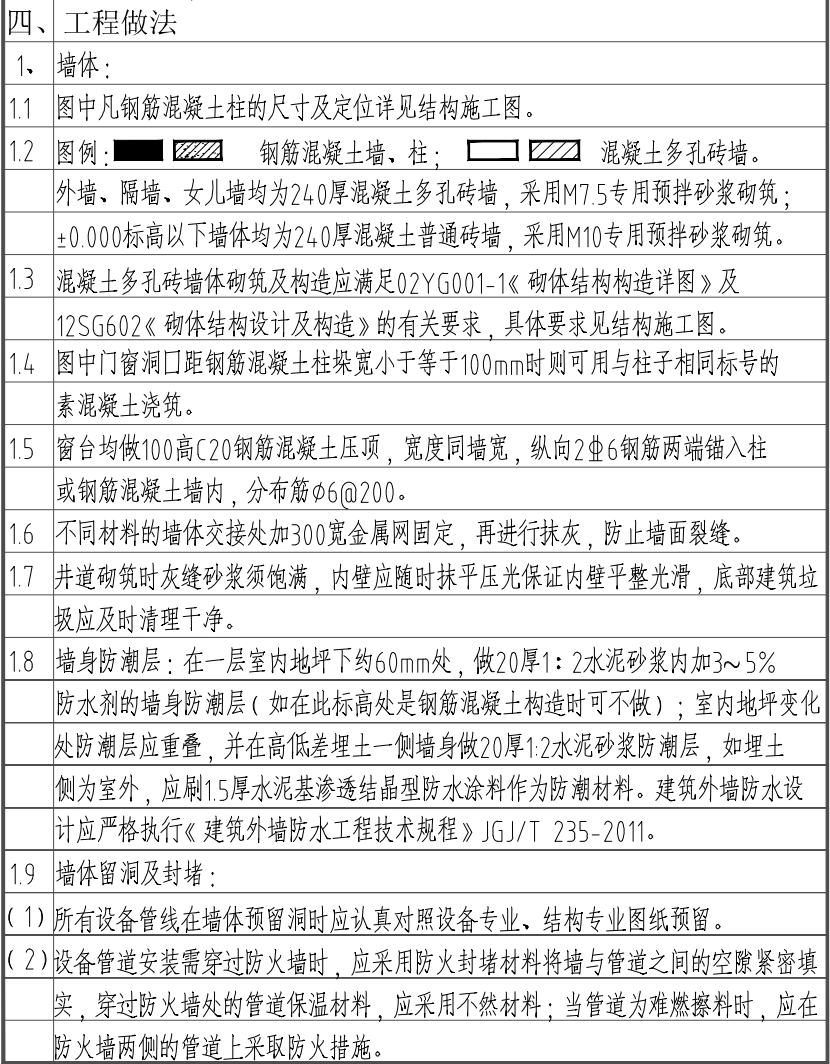 四、工程做法
1、 墙体：
1.1 图中凡钢筋混凝土柱的尺寸及定位详见结构施工图。
1.2 图例： 钢筋混凝土墙、柱； 混凝土多孔砖墙。
外墙、隔墙、女儿墙均为240厚混凝土多孔砖墙，采用M7.5专用预拌砂浆砌筑；
±0.000标高以下墙体均为240厚混凝土普通砖墙，采用M10专用预拌砂浆砌筑。
1.3 混凝土多孔砖墙体砌筑及构造应满足02YG001-1《砌体结构构造详图》及
12SG602《砌体结构设计及构造》的有关要求，具体要求见结构施工图。
1.4 图中门窗洞口距钢筋混凝土柱垛宽小于等于100mm时则可用与柱子相同标号的
素混凝土浇筑。
1.5 窗台均做100高C20钢筋混凝土压顶，宽度同墙宽，纵向2⏀6钢筋两端锚入柱
或钢筋混凝土墙内，分布筋Φ6@200。
1.6 不同材料的墙体交接处加300宽金属网固定，再进行抹灰，防止墙面裂缝。
1.7 井道砌筑时灰缝砂浆须饱满，内壁应随时抹平压光保证内壁平整光滑，底部建筑垃
圾应及时清理干净。
1.8 墙身防潮层：在一层室内地坪下约60mm处，做20厚1：2水泥砂浆内加3~5%
防水剂的墙身防潮层(如在此标高处是钢筋混凝土构造时可不做)；室内地坪变化
处防潮层应重叠，并在高低差埋土一侧墙身做20厚1:2水泥砂浆防潮层，如埋土
侧为室外，应刷1.5厚水泥基渗透结晶型防水涂料作为防潮材料。建筑外墙防水设
计应严格执行《建筑外墙防水工程技术规程》JGJ/T 235-2011。
1.9 墙体留洞及封堵：
(1)所有设备管线在墙体预留洞时应认真对照设备专业、结构专业图纸预留。
(2)设备管道安装需穿过防火墙时，应采用防火封堵材料将墙与管道之间的空隙紧密填
实，穿过防火墙处的管道保温材料，应采用不然材料；当管道为难燃擦料时，应在
防火墙两侧的管道上采取防火措施。